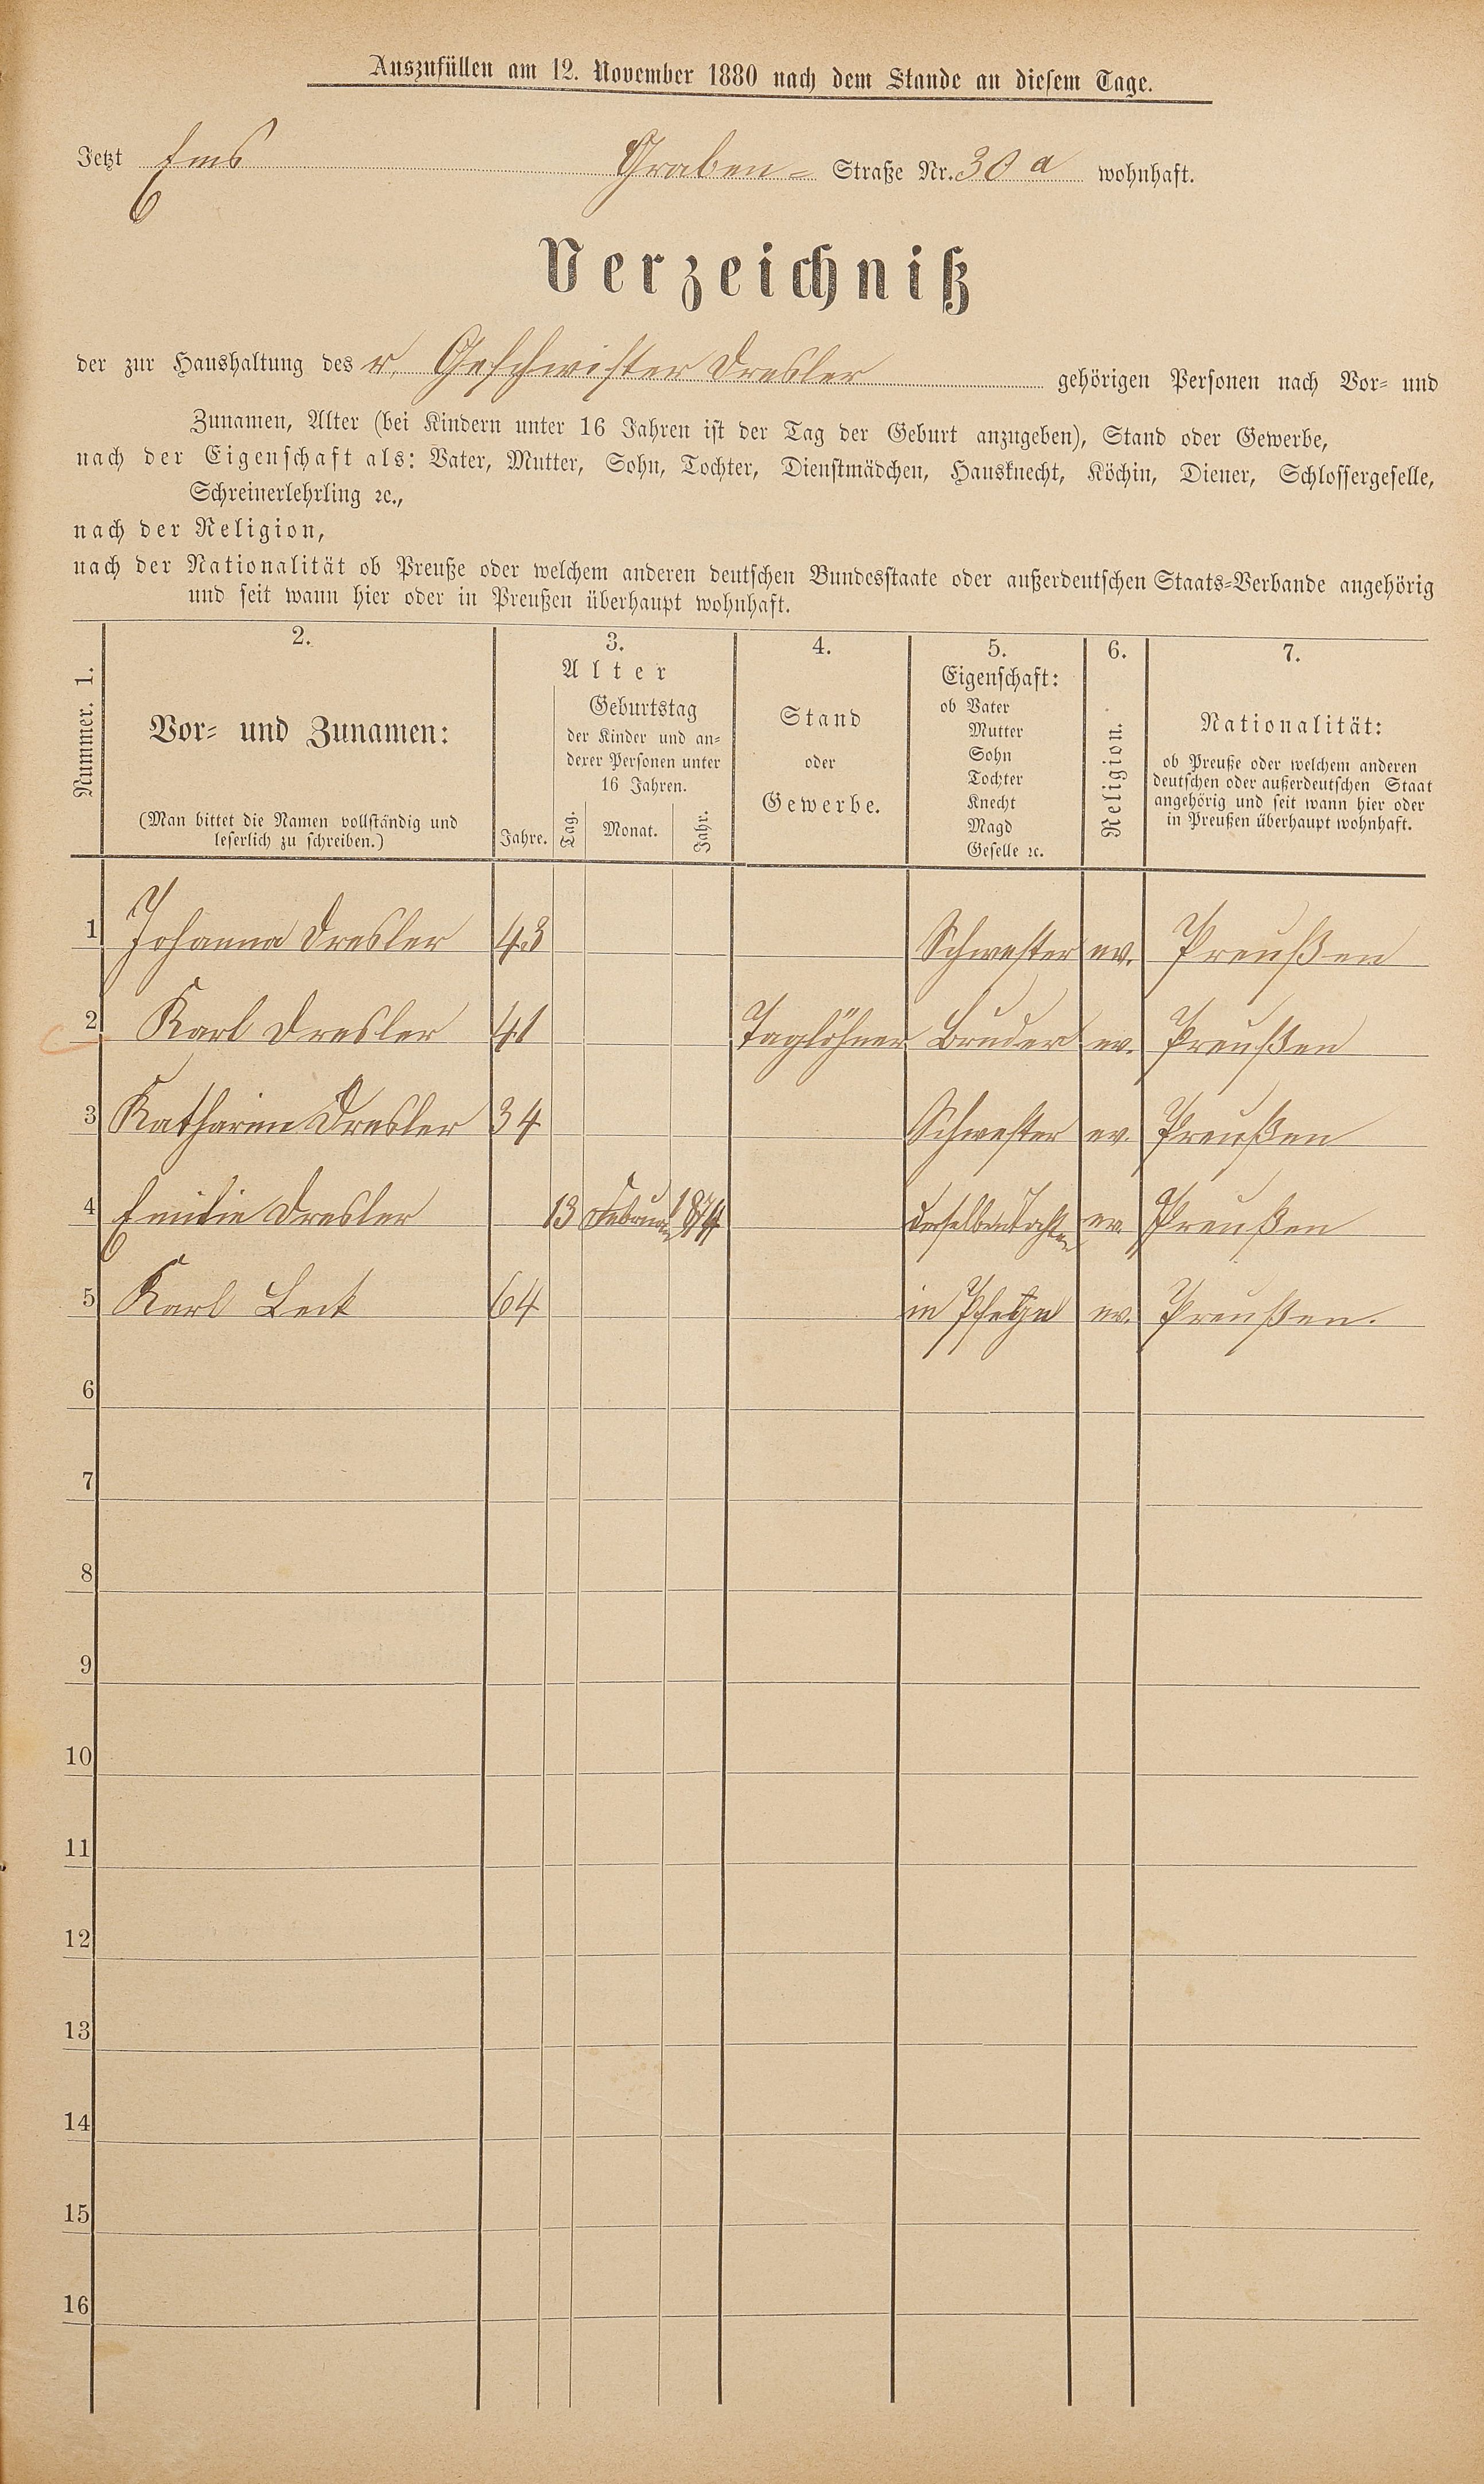 Auszufüllen am 12. November 1880 nach dem Stande an diesem Tage.
Jetzt Ems Graben- Straße Nr. 30 a wohnhaft.
Verzeichniß
der zur Haushaltung des r. Geschwister Dresler gehörigen Personen nach Vor- und
Zunamen, Alter (bei Kindern unter 16 Jahren ist der Tag der Geburt anzugeben), Stand oder Gewerbe,
nach der Eigenschaft als: Vater, Mutter, Sohn, Tochter, Dienstmädchen, Hausknecht, Köchin, Diener, Schlossergeselle,
Schreinerlehrling ꝛc.,
nach der Religion,
nach der Nationalität ob Preuße oder welchem anderen deutschen Bundesstaate oder außerdeutschen Staats-Verbande angehörig
und seit wann hier oder in Preußen überhaupt wohnhaft.
Nummer. 1.
2.
Vor- und Zunamen:
(Man bittet die Namen vollständig und
leserlich zu schreiben.)
3.
Alter
Jahre.
Geburtstag
der Kinder und an-
derer Personen unter
16 Jahren.
Tag. Monat. Jahr.
4.
Stand
oder
Gewerbe.
5.
Eigenschaft:
ob Vater
Mutter
Sohn
Tochter
Knecht
Magd
Geselle ꝛc.
6.
Religion.
7.
Nationalität:
ob Preuße oder welchem anderen
deutschen oder außerdeutschen Staat
angehörig und seit wann hier oder
in Preußen überhaupt wohnhaft.
1 Johanna Dresler 43 Schwester ev. Preußen
2 Karl Dresler 41 Taglöhner Bruder ev. Preußen
3 Katharine Dresler 34 Schwester ev. Preußen
4 Emilie Dresler 13 Februar 1874 derselben Tochter ev. Preußen
5 Karl Leck 64 in Pflege ev. Preußen.
6
7
8
9
10
11
12
13
14
15
16